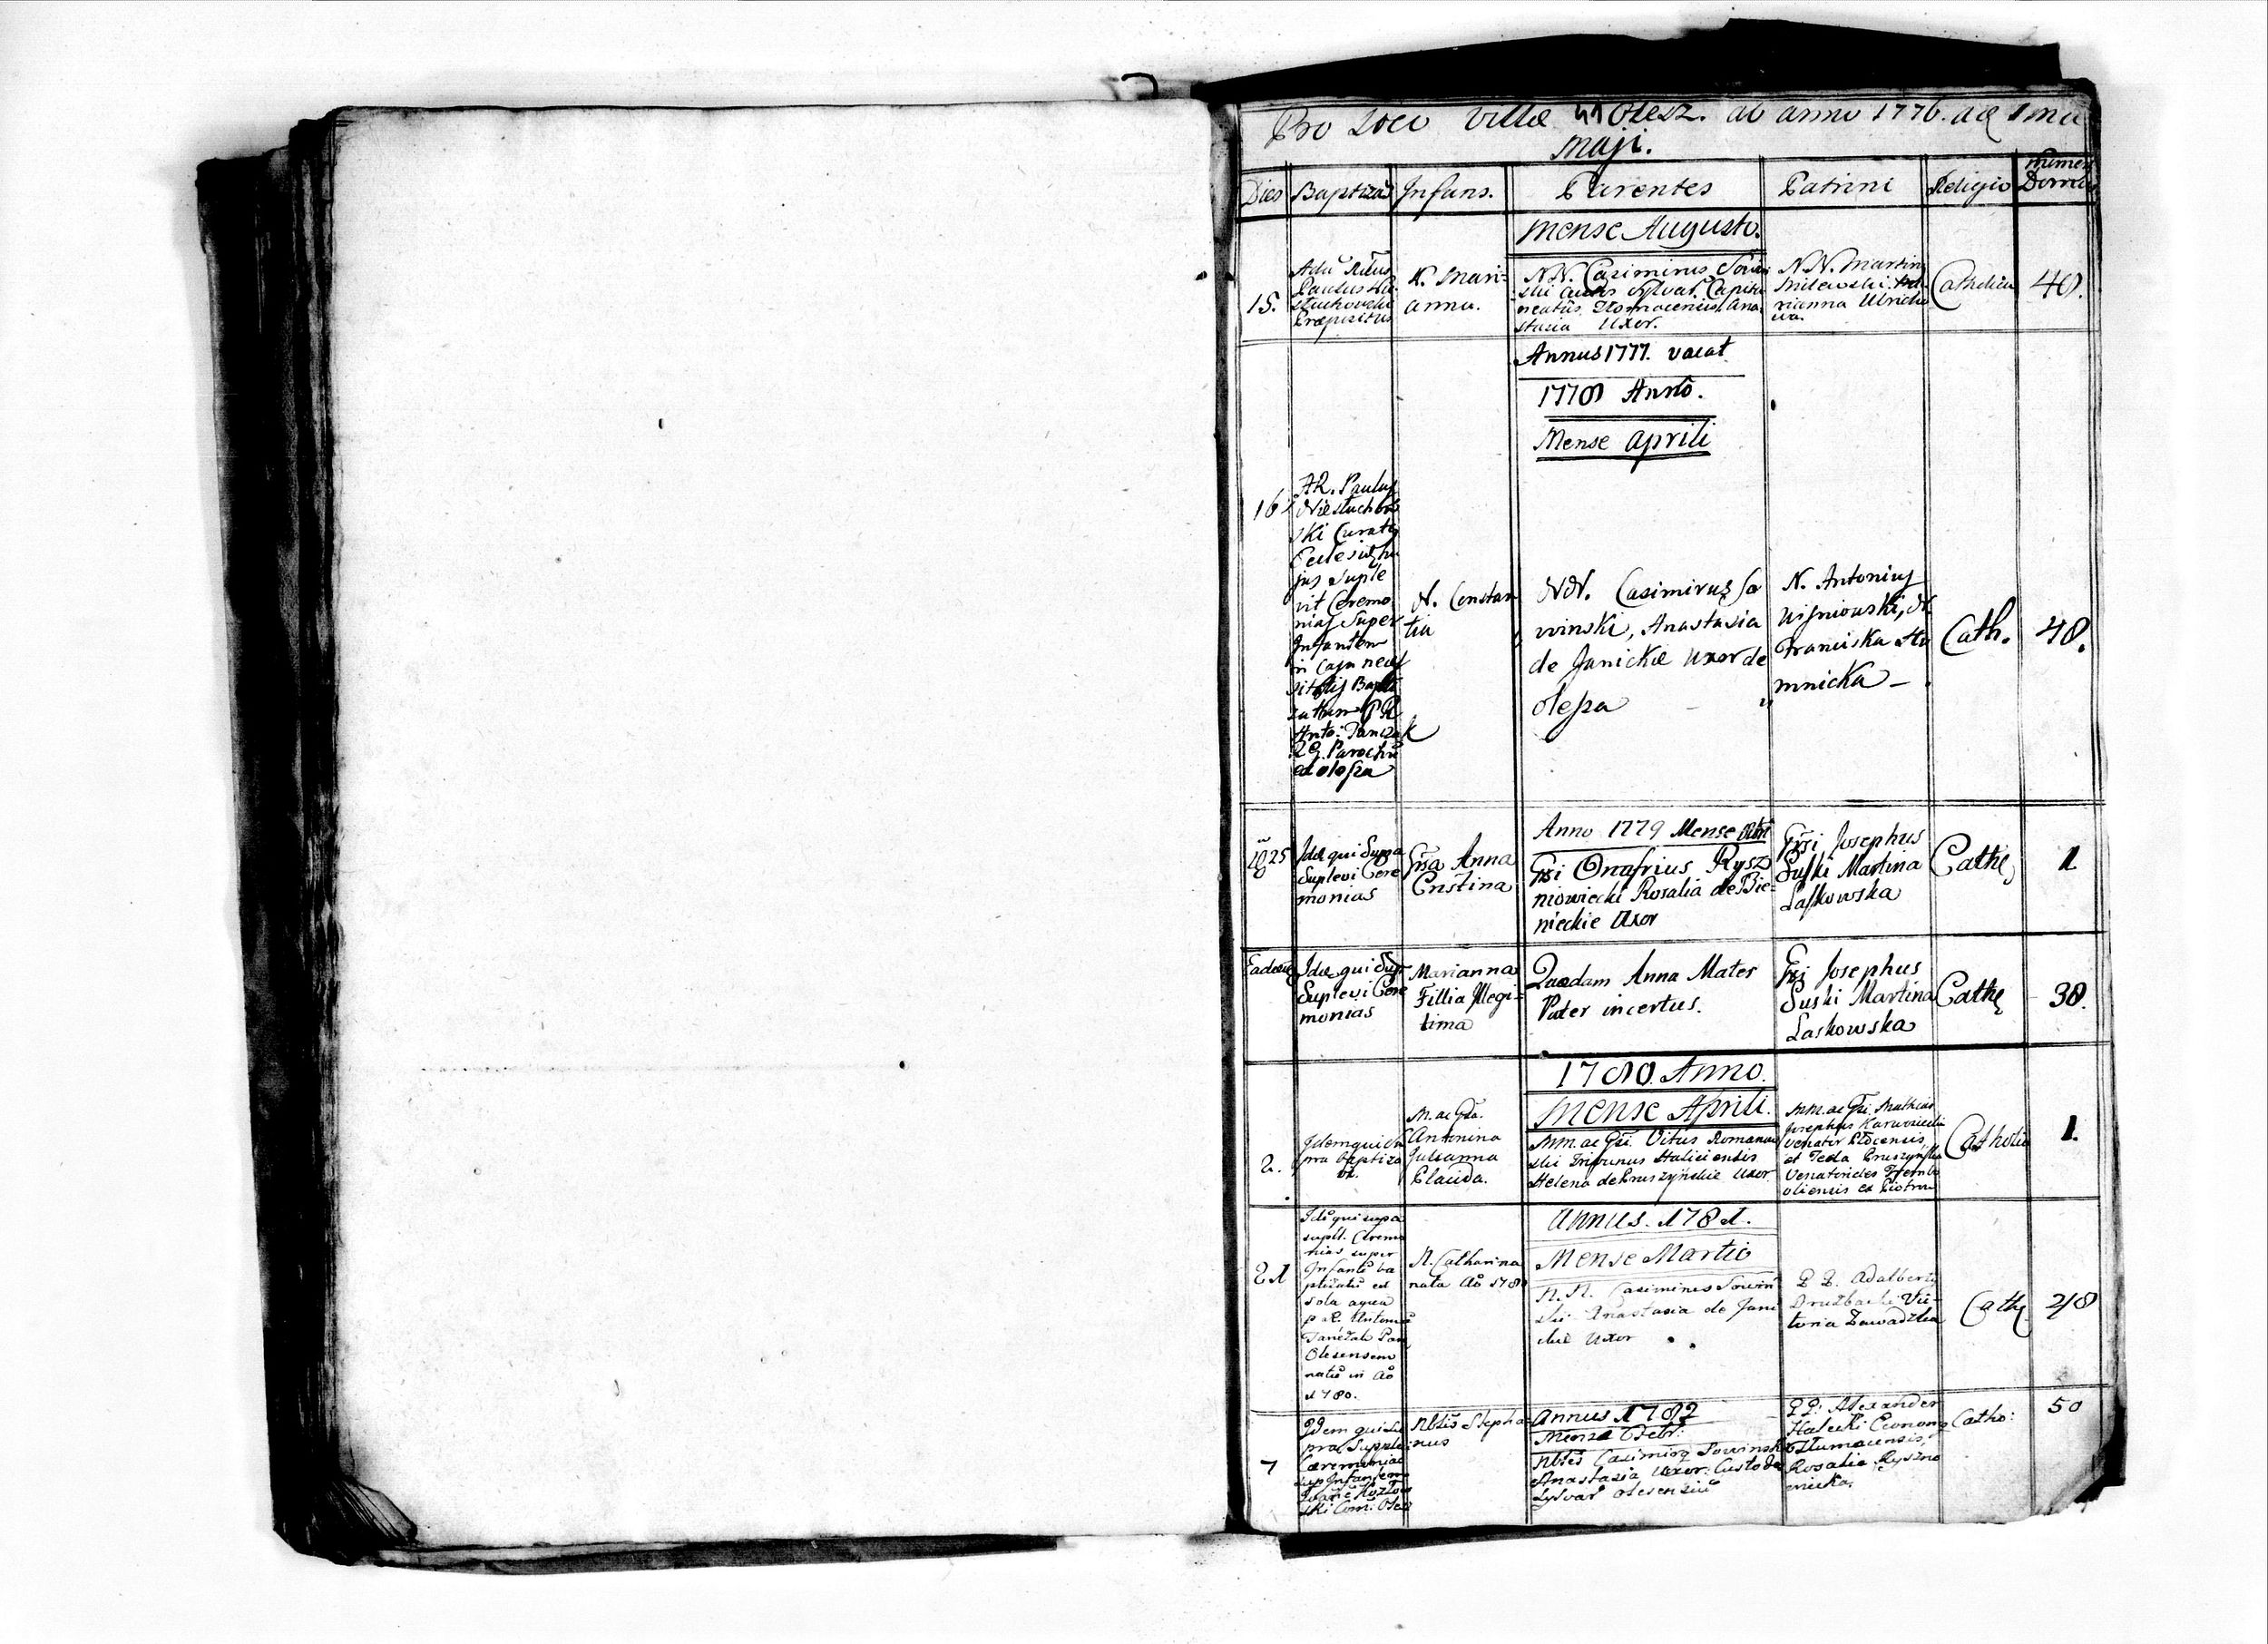 Pro Loco Villæ Olesz. ab anno 1776. ad 1ma
Maji.
Dies Baptizās Infans. Parentes Patrini Religio Numer9 Domus
Mense Augusto.
15.
Paulus Nie-
stuchovski
Præpositus
N. Mari-
anna.
N.N. Casimirus Sowin-
ski Sylvar. Capita-
neatûs Tlomacensis, Ana-
stasia Uxor.
N.N. Martin9
Milewski. Ma-
rianna Ulricho-
wa.
Catholica
40.
Annus 1777. vacat
1778 Anno.
Mense Aprili
16
AR. Paulus
Niestuchow
ski Curat9
Eclesiæ hu
jus Suple
vit Ceremo
nias Super
Infantem
in Casu neces
sitatis Bapti
zatum P R
Anto: Tanczak
R G. Parochū
ex Olesza
N. Constan
tia
NN. Casimirus So
winski, Anastasia
de Janickie Uxor de
Olesza
N. Antonius
Wisniowski, N.
Franciska Sto
mnicka
Cath.
48.
Anno 1779 Mense
25
Idē qui Supra
Suplevi Cere
monias
Gsa Anna
Cristina
Gsi Onafrius Rysz
niowiecki Rosalia de Bie-
nieckie Uxor
Gsi Josephus
Suski Martina
Laskowska
Cathę
1
Eadem
Idē qui Sup
Suplevi Cere
monias
Marianna
Fillia Illegi-
tima
Quædam Anna Mater
Pater incertus.
Gsi Josephus
Suski Martina
Laskowska
Cathę
38.
1780. Anno.
Mense Aprili.
2.
Idem qui su
pra baptiza
vit.
M. ac Gsa.
Antonina
Julianna
Placida.
MM. ac Gsi. Vitus Romanow
ski Tribunus Haliciensis
Helena de Pruszyńskie Uxor
MM. ac Gsi. Mathias
Josephus Karwosiecki
Venator Plocensis
et Tecla Pruszyńska
Catholic
1.
Annus. 1781.
Mense Martio
21
Idē qui supa
supll. Cæremo
nias super
Infantē ba
ptizatū ex
sola aqua
p R. Antoniū
Tańczak Par
Olesensem
natū in Aō
1780.
N. Catharina
nata Aō 1780
N. N. Casimirus Sowiń
ski Anastasia de Jani
ckie Uxor
P P. Adalbert9
Drużbacki Vic-
toria Zawadzka
Cathę
48
Annus 1782
Mense Febr:
7
Idem qui Su
pra Supple
Cæremonias
sup Infantem
Ivanē Kozłow
ski Com: Oles
Nbłis Stepha
nus
Nbłes Casimir9 Sowinski
Anastasia Uxor. Custodes
Sylvar Olesensiū
P P: Alexander
Halecki Econom9
Tlumacensis,
Rosalia Ryszno
wiecka.
Catho:
50